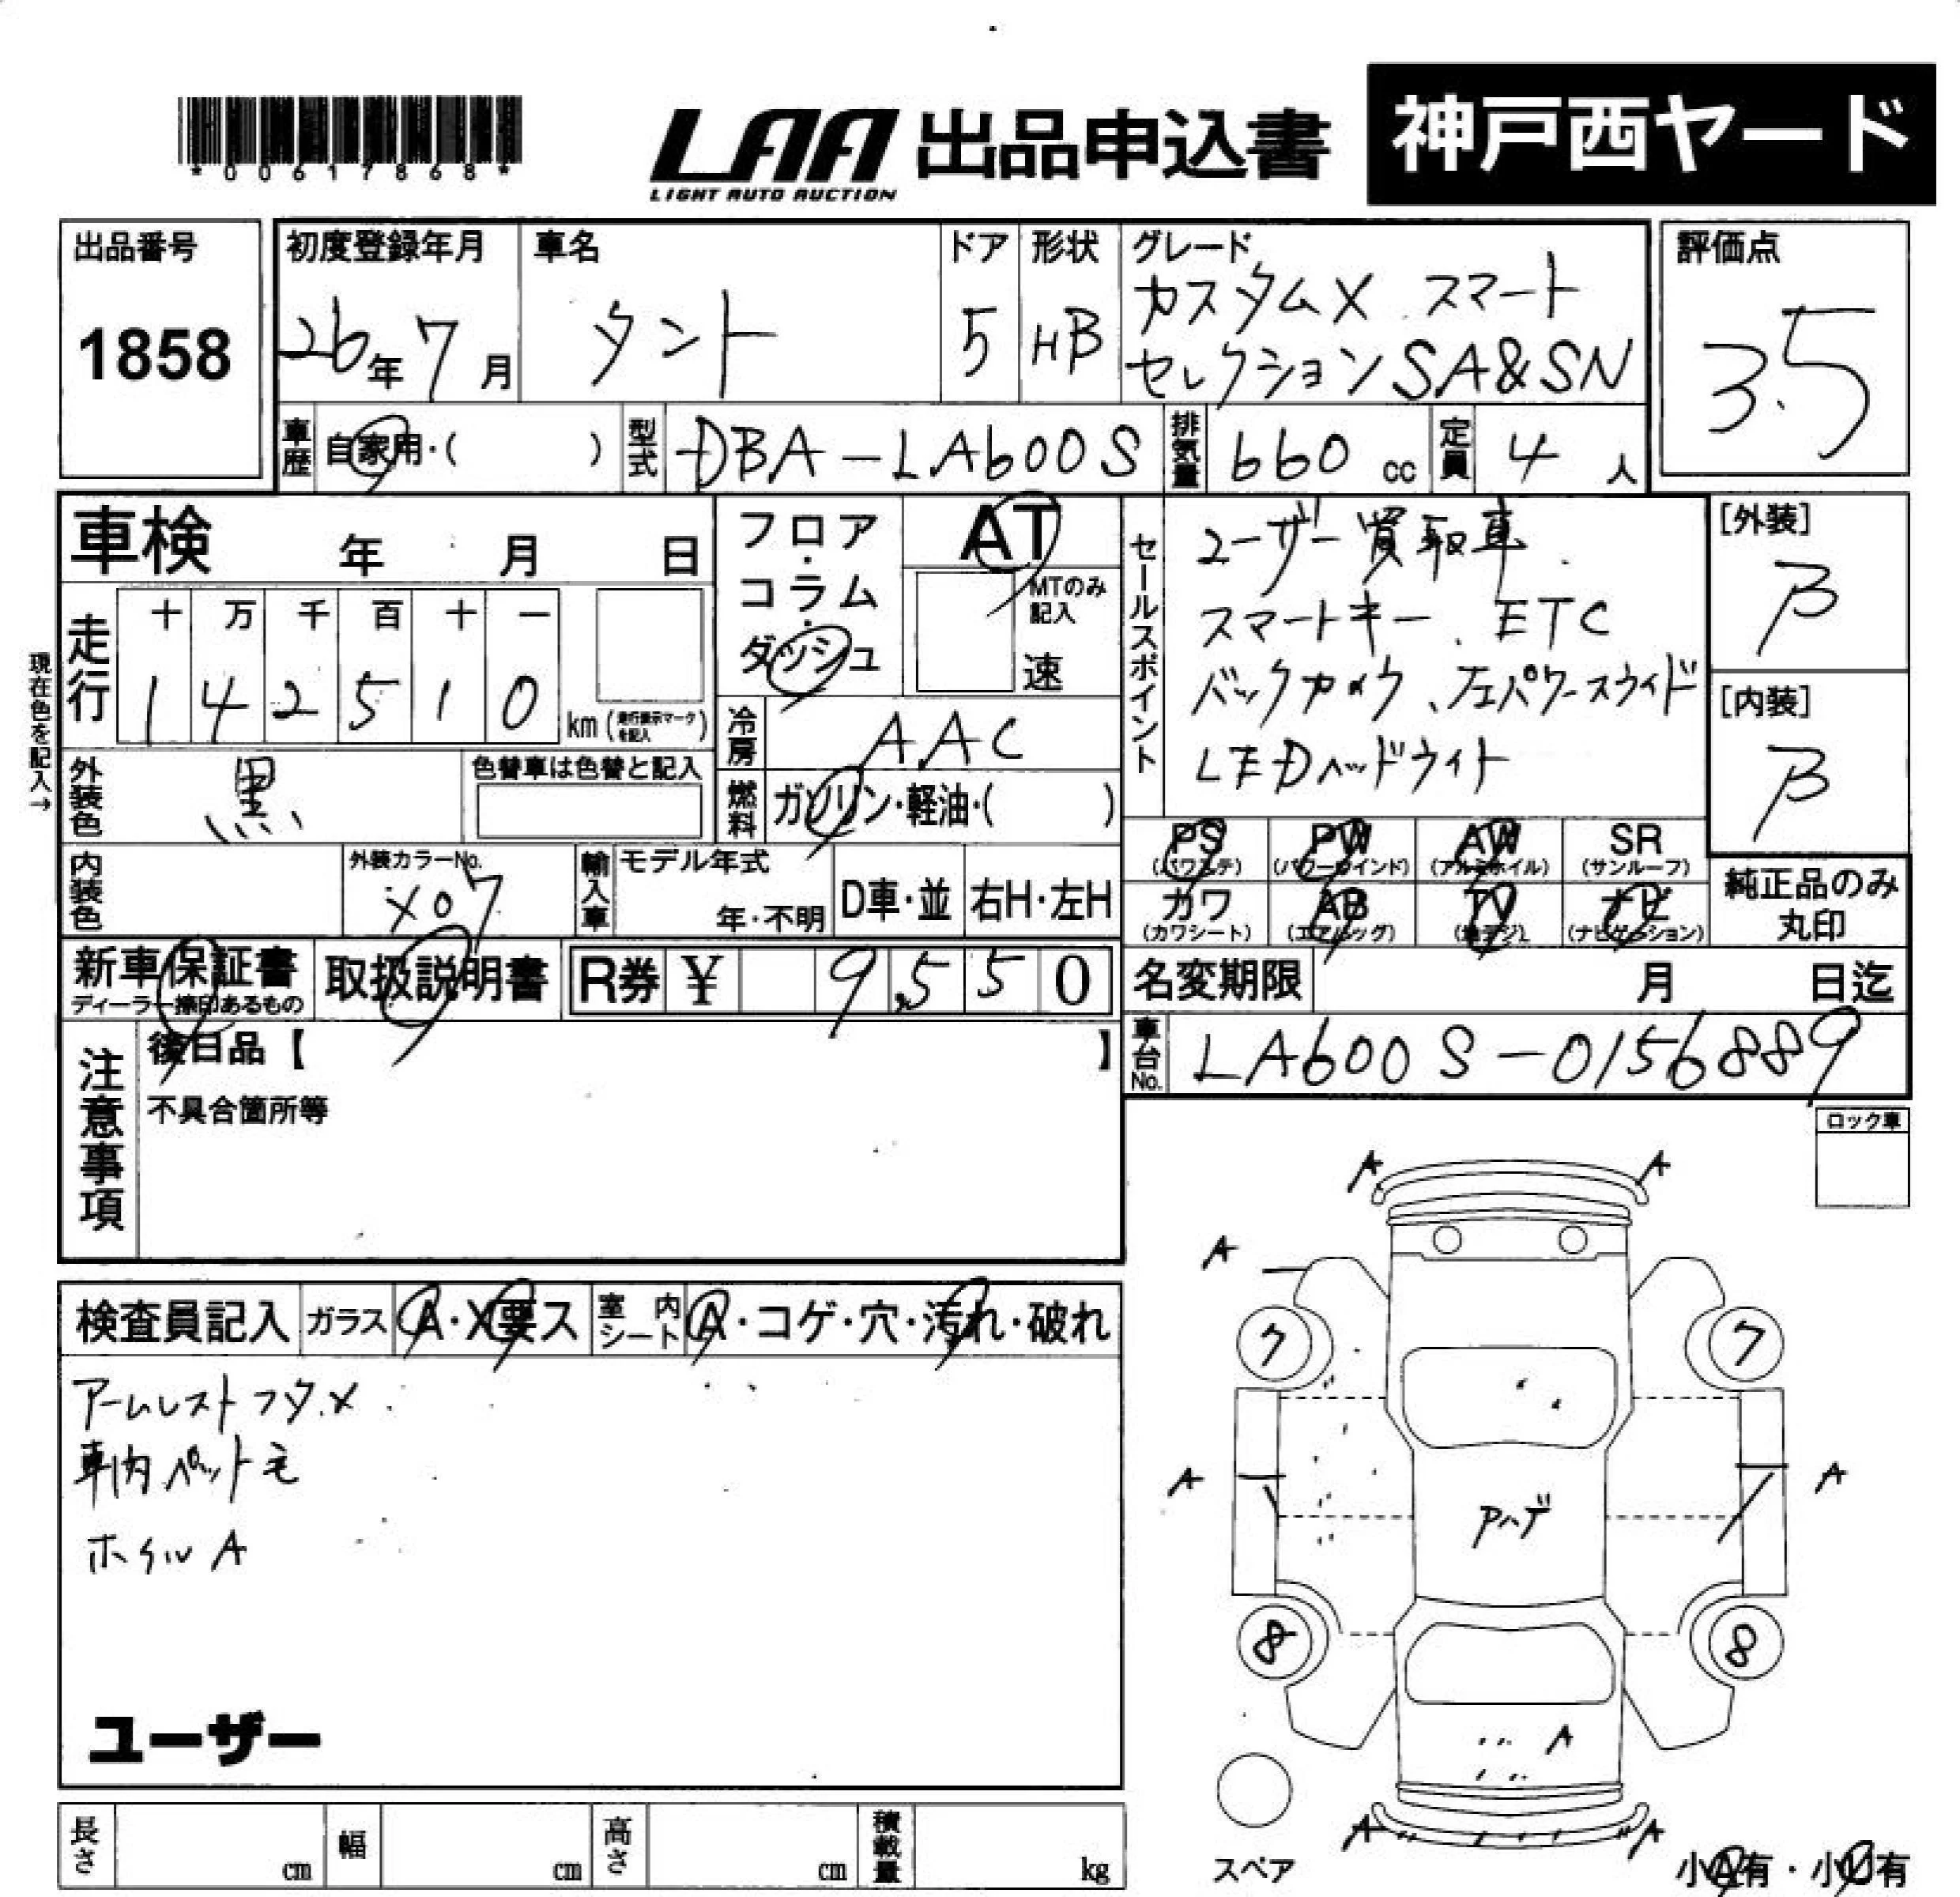 *00617868*
LAA 出品申込書 神戸西ヤード
LIGHT AUTO AUCTION
出品番号 初度登録年月 車名 ドア 形状 グレード 評価点
1858 26年7月 タント 5 HB カスタムX スマート
セレクションSA&SN 3.5
車歴 自家用・( ) 型式 DBA-LA600S 排気量 660 cc 定員 4 人
車検 年 月 日
フロア・コラム・ダッシュ AT
MTのみ記入 速
現在色を記入→
走行 十 万 千 百 十 一
1 4 2 5 1 0 km (走行表示マークを記入)
冷房 AAC
外装色 黒 色替車は色替と記入
燃料 ガソリン・軽油・( )
内装色 外装カラーNo. X07
輸入車 モデル年式 年・不明 D車・並 右H・左H
新車保証書 ディーラー捺印あるもの 取扱説明書 R券 ¥ 9,550
セールスポイント
ユーザー買取車.
スマートキー、ETC
バックカメラ、左パワースライド
LEDヘッドライト
[外装] B
[内装] B
PS (パワステ) PW (パワーウインド) AW (アルミホイル) SR (サンルーフ)
カワ (カワシート) AB (エアバッグ) TV (地デジ) ナビ (ナビゲーション)
純正品のみ
丸印
名変期限 月 日迄
車台No. LA600S-0156889
注意事項
後日品【 】
不具合箇所等
ロック車
検査員記入 ガラス A・X要ス 室内シート A・コゲ・穴・汚れ・破れ
アームレストフタ.X
車内ペット毛
ホイルA
ユーザー
A A
A
7 7
A A
Pヘデ
8 8
A
A A
スペア
小A有・小U有
長さ cm 幅 cm 高さ cm 積載量 kg